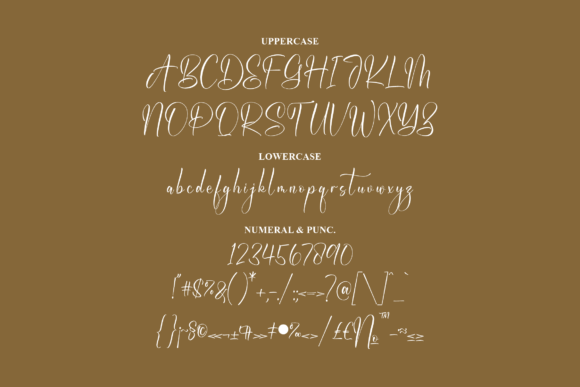 UPPERCASE
ABCDEFGHIJKLM
NOPQRSTUVWXYZ
LOWERCASE
abcdefghijklmnopqrstuvwxyz
NUMERAL & PUNC.
1234567890
!"#$%&()*+,-./:;<=>?@[\]^_`